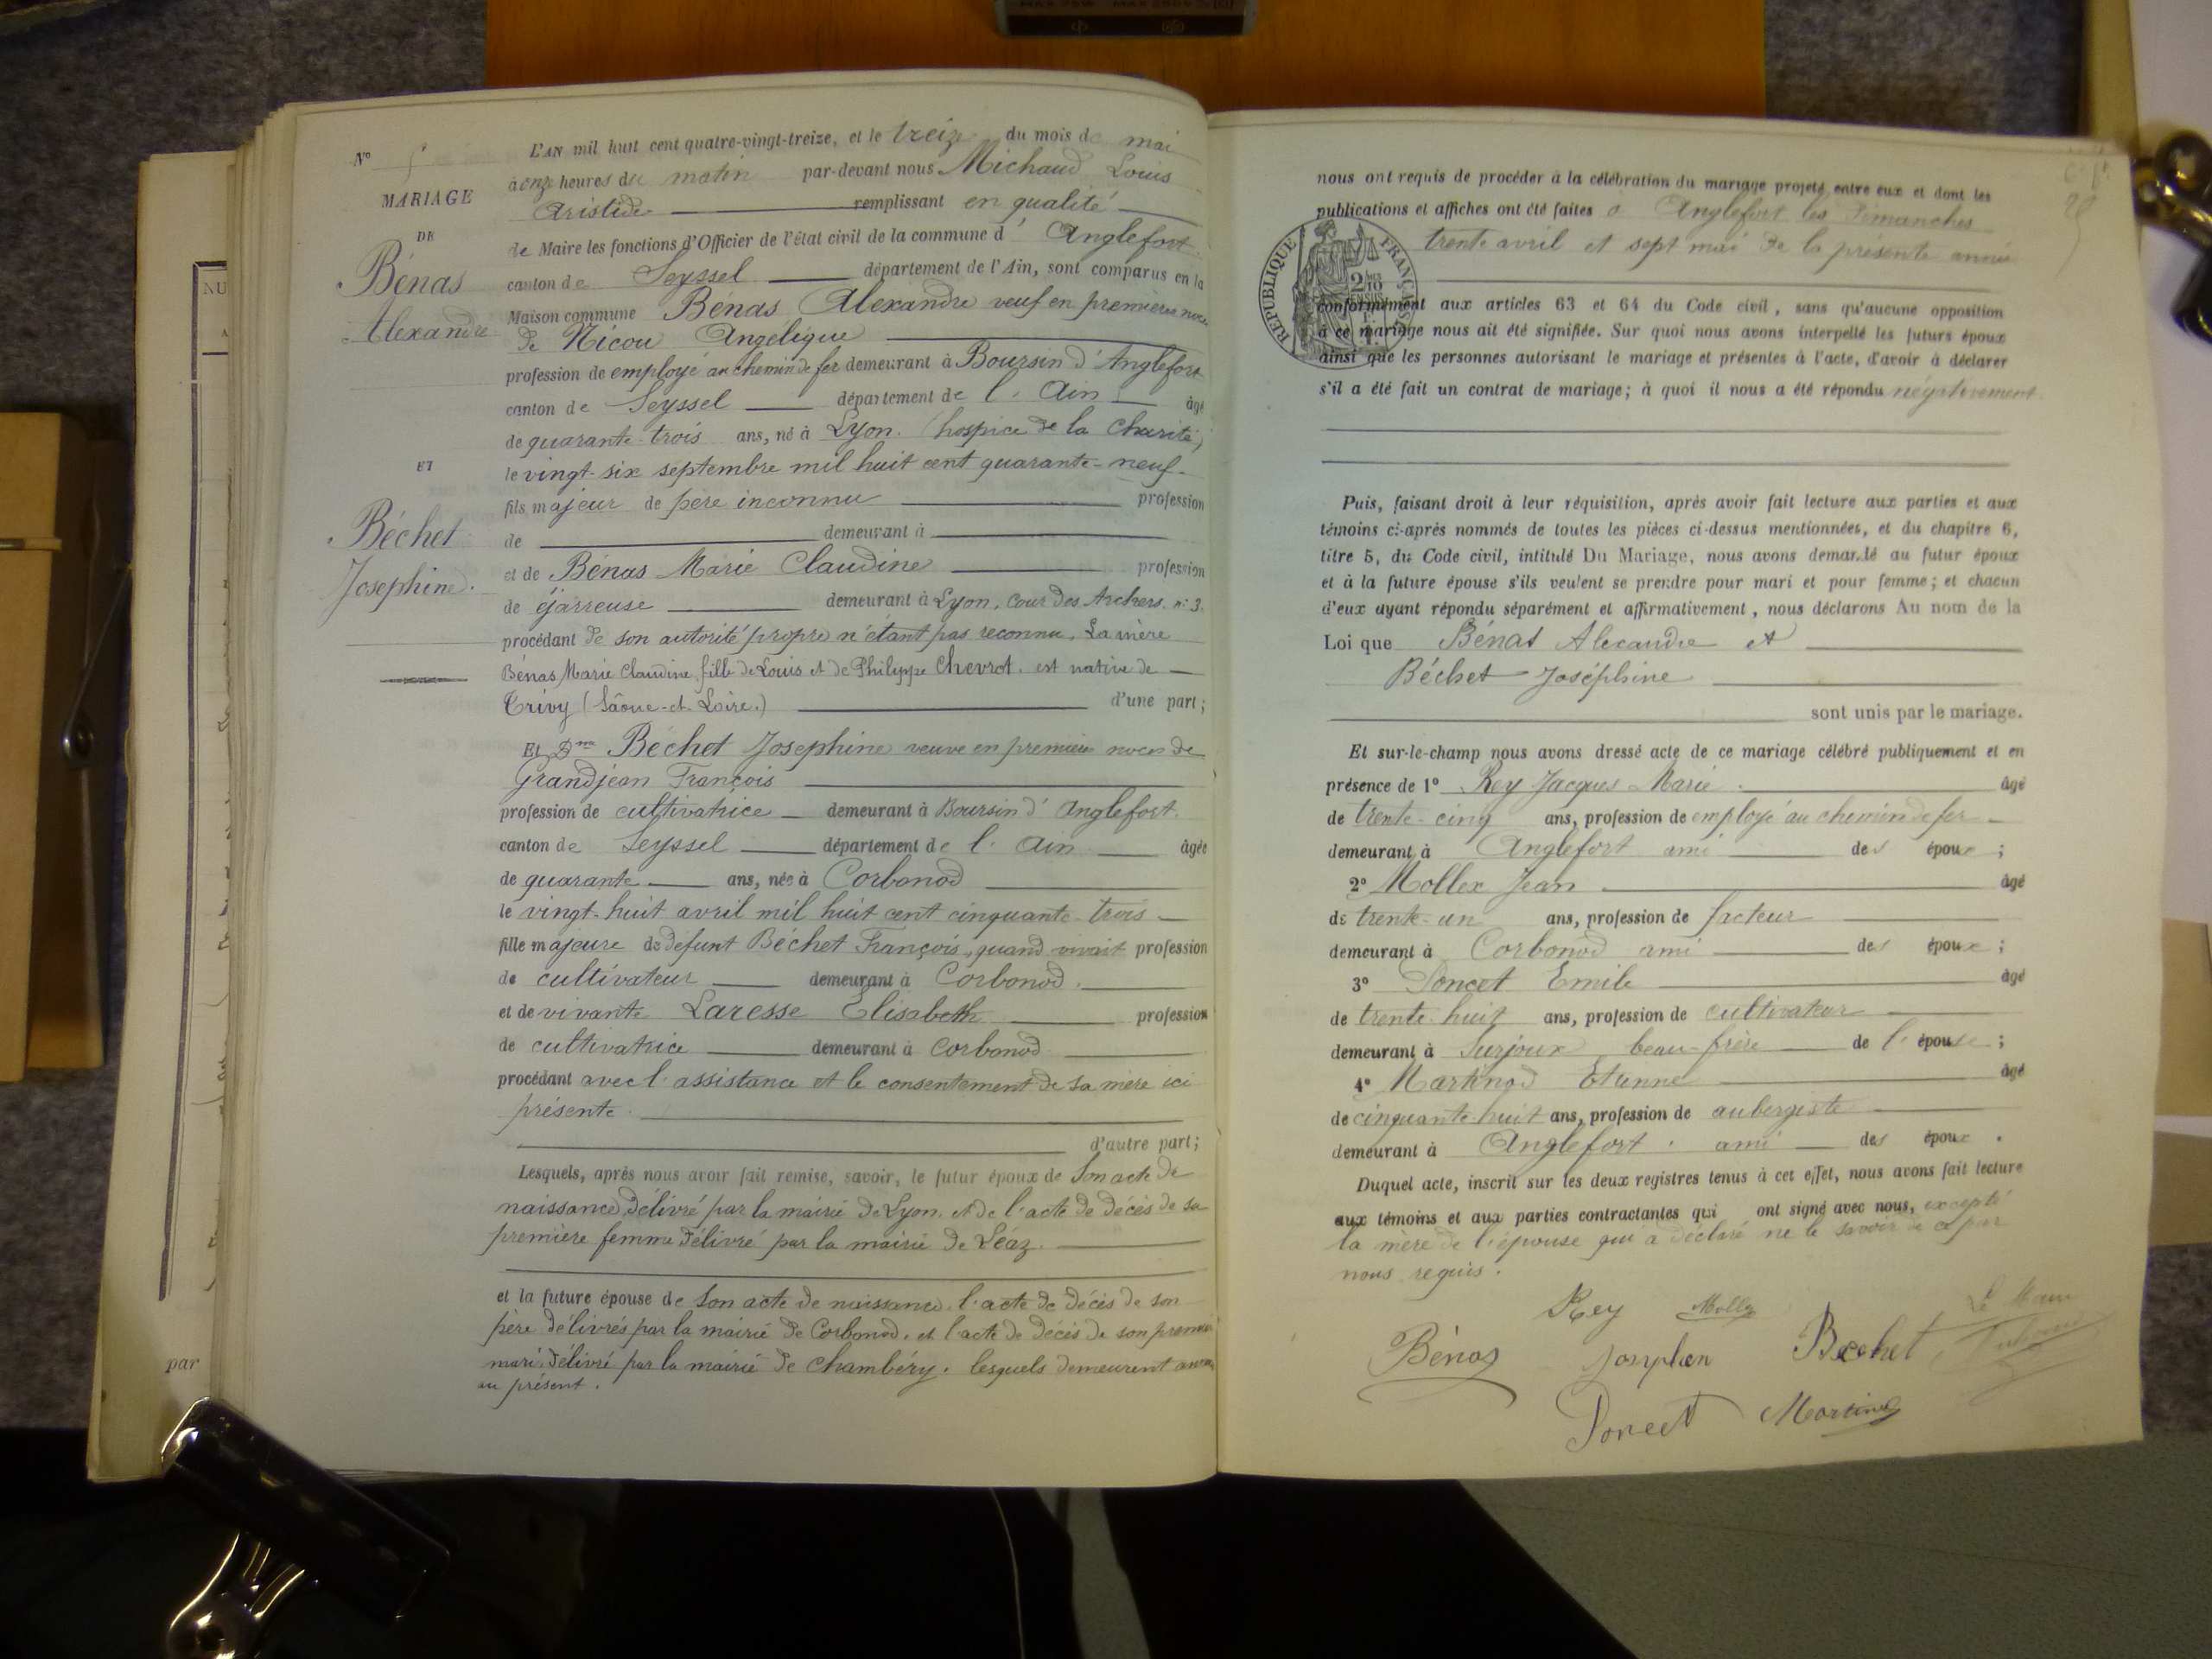 N° 5
MARIAGE
DE
Bénas
Alexandre
ET
Béchet
Josephine.
L'AN mil huit cent quatre-vingt-treize, et le treize du mois de mai
à onze heures du matin par-devant nous Michaud Louis
Aristide remplissant en qualité
de Maire les fonctions d'Officier de l'état civil de la commune d' Anglefort
canton de Seyssel département de l'Ain, sont comparus en la
Maison commune Bénas Alexandre veuf en premières noces
de Nicou Angelique
profession de employé au chemin de fer demeurant à Boursin d'Anglefort
canton de Seyssel département de l'Ain âgé
de quarante-trois ans, né à Lyon. (hospice de la Charité)
le vingt-six septembre mil huit cent quarante-neuf
fils majeur de père inconnu profession
de demeurant à
et de Bénas Marie Claudine profession
de gjarreuse demeurant à Lyon, Cour des Archers. n: 3.
procédant de son autorité propre n'étant pas reconnu. La mère
Bénas Marie Claudine, fille de Louis et de Philippe Chevrot. est native de
Trivy (Saône-et-Loire.) d'une part;
Et Dme Béchet Josephine veuve en premières noces de
Grandjean François
profession de cultivatrice demeurant à Boursin d'Anglefort.
canton de Seyssel département de l'Ain âgée
de quarante ans, née à Corbonod
le vingt-huit avril mil huit cent cinquante-trois
fille majeure de défunt Béchet François, quand vivait profession
de cultivateur demeurant à Corbonod.
et de vivante Laresse Elisabeth profession
de cultivatrice demeurant à Corbonod
procédant avec l'assistance et le consentement de sa mère ici
présente.
d'autre part;
Lesquels, après nous avoir fait remise, savoir, le futur époux de Son acte de
naissance, délivré par la mairie de Lyon. et de l'acte de décès de sa
première femme délivré par la mairie de Léaz.
et la future épouse de Son acte de naissance, l'acte de décès de son
père délivrés par la mairie de Corbonod, et l'acte de décès de son premier
mari, délivré par la mairie de Chambéry. lesquels demeurent annexés
au présent.
par
nous ont requis de procéder à la célébration du mariage projeté entre eux et dont les
publications et affiches ont été faites à Anglefort les Dimanches
trente avril et sept mai de la présente année
RÉPUBLIQUE FRANÇAISE
conformément aux articles 63 et 64 du Code civil, sans qu'aucune opposition
à ce mariage nous ait été signifiée. Sur quoi nous avons interpellé les futurs époux
ainsi que les personnes autorisant le mariage et présentes à l'acte, d'avoir à déclarer
s'il a été fait un contrat de mariage; à quoi il nous a été répondu négativement
Puis, faisant droit à leur réquisition, après avoir fait lecture aux parties et aux
témoins ci-après nommés de toutes les pièces ci-dessus mentionnées, et du chapitre 6,
titre 5, du Code civil, intitulé Du Mariage, nous avons demandé au futur époux
et à la future épouse s'ils veulent se prendre pour mari et pour femme; et chacun
d'eux ayant répondu séparément et affirmativement, nous déclarons Au nom de la
Loi que Bénas Alexandre et
Béchet Joséphine
sont unis par le mariage.
Et sur-le-champ nous avons dressé acte de ce mariage célébré publiquement et en
présence de 1° Rey Jacques Marie âgé
de trente-cinq ans, profession de employé au chemin de fer
demeurant à Anglefort ami des époux;
2° Mollex Jean âgé
de trente-un ans, profession de facteur
demeurant à Corbonod ami des époux;
3° Poncet Emile âgé
de trente-huit ans, profession de cultivateur
demeurant à Surjoux beau-frère de l'épouse;
4° Martinod Etienne âgé
de cinquante-huit ans, profession de aubergiste
demeurant à Anglefort. ami des époux.
Duquel acte, inscrit sur les deux registres tenus à cet effet, nous avons fait lecture
aux témoins et aux parties contractantes qui ont signé avec nous, excepté
la mère de l'épouse qui a déclaré ne le savoir de ce par
nous requis.
Rey Mollex Le Maire
Bénas Josephen Bechet
Poncet Martinod